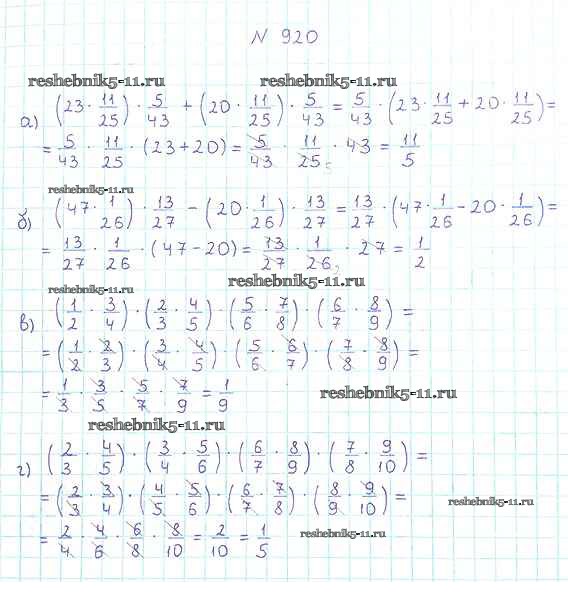 N 920
reshebnik5-11.ru reshebnik5-11.ru
а) (23 · 11/25) · 5/43 + (20 · 11/25) · 5/43 = 5/43 · (23 · 11/25 + 20 · 11/25) =
= 5/43 · 11/25 · (23 + 20) = 5/43 · 11/25 5 · 43 = 11/5
reshebnik5-11.ru
б) (47 · 1/26) · 13/27 − (20 · 1/26) · 13/27 = 13/27 · (47 · 1/26 − 20 · 1/26) =
= 13/27 · 1/26 · (47 − 20) = 13/27 · 1/26 2 · 27 = 1/2
reshebnik5-11.ru reshebnik5-11.ru
в) (1/2 · 3/4) · (2/3 · 4/5) · (5/6 · 7/8) · (6/7 · 8/9) =
= (1/2 · 2/3) · (3/4 · 4/5) · (5/6 · 6/7) · (7/8 · 8/9) =
= 1/3 · 3/5 · 5/7 · 7/9 = 1/9
reshebnik5-11.ru
reshebnik5-11.ru
г) (2/3 · 4/5) · (3/4 · 5/6) · (6/7 · 8/9) · (7/8 · 9/10) =
= (2/3 · 3/4) · (4/5 · 5/6) · (6/7 · 7/8) · (8/9 · 9/10) =
reshebnik5-11.ru
= 2/4 · 4/6 · 6/8 · 8/10 = 2/10 = 1/5
reshebnik5-11.ru